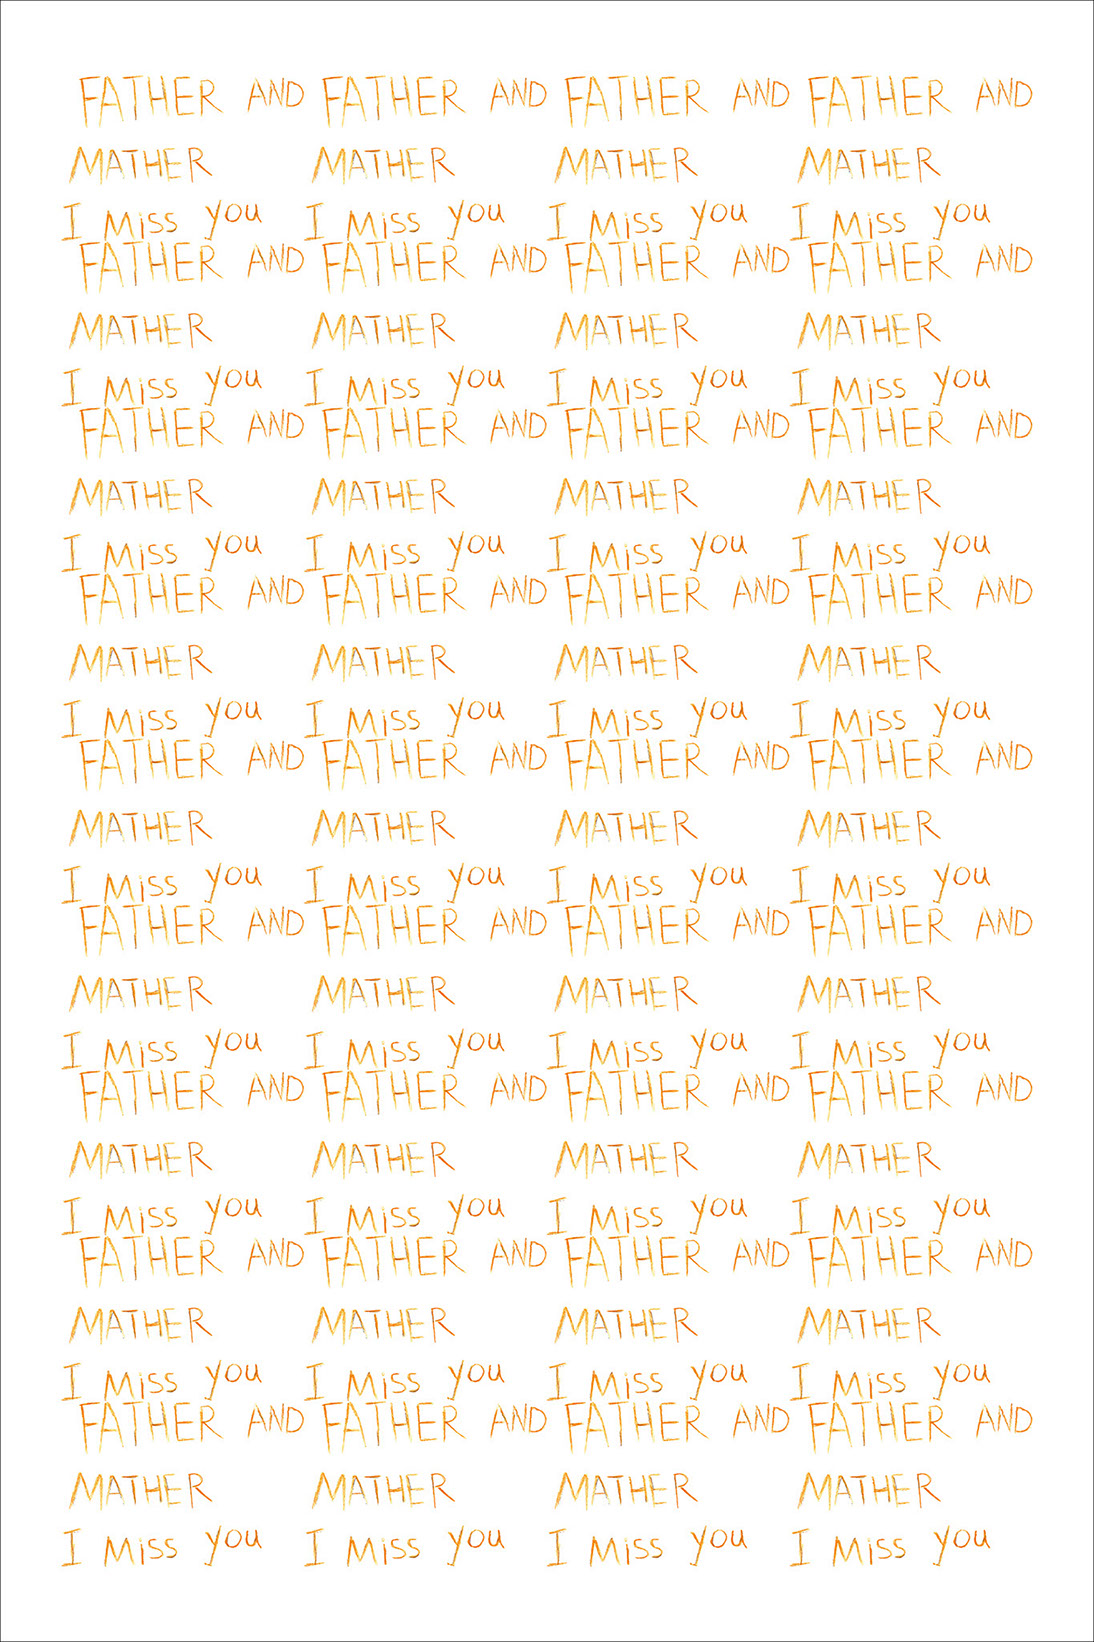 FATHER AND FATHER AND FATHER AND FATHER AND
MATHER MATHER MATHER MATHER
I Miss you I Miss you I Miss you I Miss you
FATHER AND FATHER AND FATHER AND FATHER AND
MATHER MATHER MATHER MATHER
I Miss you I Miss you I Miss you I Miss you
FATHER AND FATHER AND FATHER AND FATHER AND
MATHER MATHER MATHER MATHER
I Miss you I Miss you I Miss you I Miss you
FATHER AND FATHER AND FATHER AND FATHER AND
MATHER MATHER MATHER MATHER
I Miss you I Miss you I Miss you I Miss you
FATHER AND FATHER AND FATHER AND FATHER AND
MATHER MATHER MATHER MATHER
I Miss you I Miss you I Miss you I Miss you
FATHER AND FATHER AND FATHER AND FATHER AND
MATHER MATHER MATHER MATHER
I Miss you I Miss you I Miss you I Miss you
FATHER AND FATHER AND FATHER AND FATHER AND
MATHER MATHER MATHER MATHER
I Miss you I Miss you I Miss you I Miss you
FATHER AND FATHER AND FATHER AND FATHER AND
MATHER MATHER MATHER MATHER
I Miss you I Miss you I Miss you I Miss you
FATHER AND FATHER AND FATHER AND FATHER AND
MATHER MATHER MATHER MATHER
I Miss you I Miss you I Miss you I Miss you